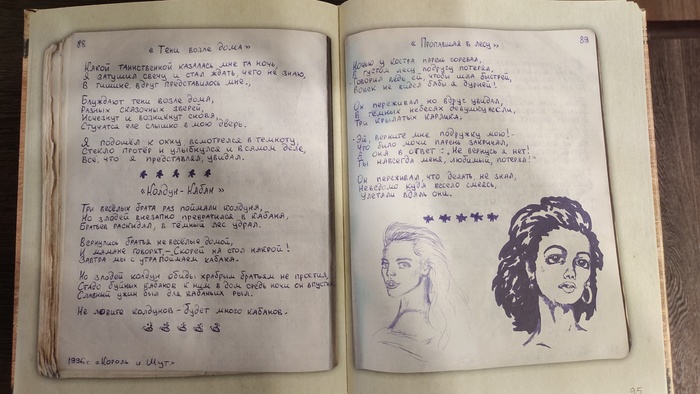 88
« Тени возле дома»
Какой таинственной казалась мне та ночь,
Я затушил свечу и стал ждать, чего не знаю,
В тишине вдруг представилось мне.,
Блуждают тени возле дома,
Разных сказочных зверей,
Исчезнут и возникнут снова,
Стучатся еле слышно в мою дверь.
Я подошёл к окну всмотрелся в темноту,
Стекло протёр и улыбнулся и в самом деле,
Всё, что я представлял, увидал.
«Колдун-Кабан»
Три весёлых брата раз поймали колдуна,
Но злодей внезапно превратился в кабана,
Братьев раскидал, в тёмный лес удрал.
Вернулись братья не весёлые домой,
И мамане говорят - Скорей на стол накрой!
Завтра мы с утра поймаем кабана.
Но злодей колдун обиды храбрым братьям не простил,
Стадо буйных кабанов к ним в дом средь ночи он впустил
Славный ужин был для кабаньих рыл.
Не ловите колдунов - будет много кабанов.
199 г. «Король и Шут»
89
« Пропавшая в лесу»
Ночью у костра парень горевал,
В густом лесу подругу потерял,
Говорил ведь ей, чтобы шла быстрей,
Вовек не видел бабы я дурней!
Он переживал но вдруг увидал,
В тёмных небесах девушку несли,
Три крылатых карлика.
-Эй, верните мне подружку мою!-
Что было мочи парень закричал,
А она в ответ:, Не вернусь я нет!
Ты навсегда меня, любимый, потерял!"
Он переживал, что делать не знал,
Неведомо куда весело смеясь,
Улетали вдаль они.
95